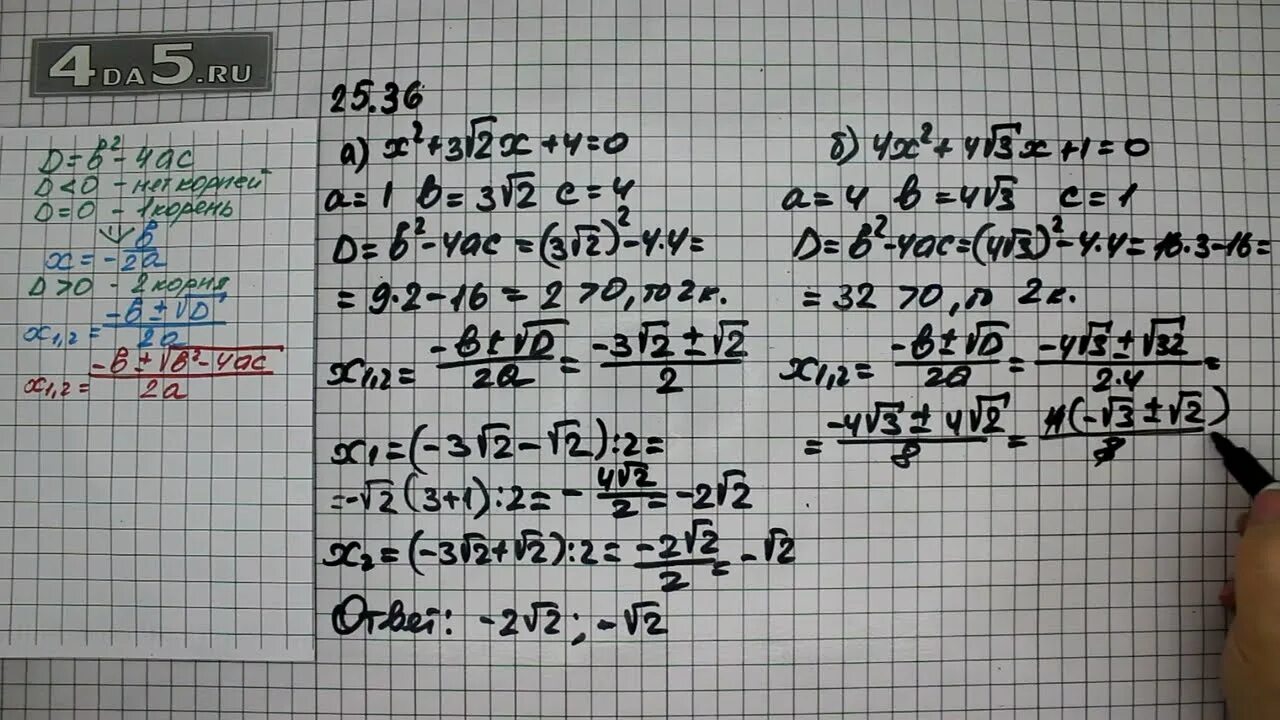 4DA5.RU
D=в²-4ас
D<0 - нет корней
D=0 - 1 корень
x=-в/2а
D>0 - 2 корня
x₁,₂=(-в±√D)/2а
x₁,₂=(-в±√(в²-4ас))/2а
25.36
а) x²+3√2x+4=0
а=1 в=3√2 с=4
D=в²-4ас=(3√2)²-4·4=
=9·2-16=2>0, то 2к.
x₁,₂=(-в±√D)/2а=(-3√2±√2)/2
x₁=(-3√2-√2):2=
=-√2(3+1):2=-4√2/2=-2√2
x₂=(-3√2+√2):2=-2√2/2=-√2
Ответ: -2√2; -√2
б) 4x²+4√3x+1=0
а=4 в=4√3 с=1
D=в²-4ас=(4√3)²-4·4=16·3-16=
=32>0, то 2к.
x₁,₂=(-в±√D)/2а=(-4√3±√32)/2·4=
=(-4√3±4√2)/8=4(-√3±√2)/8